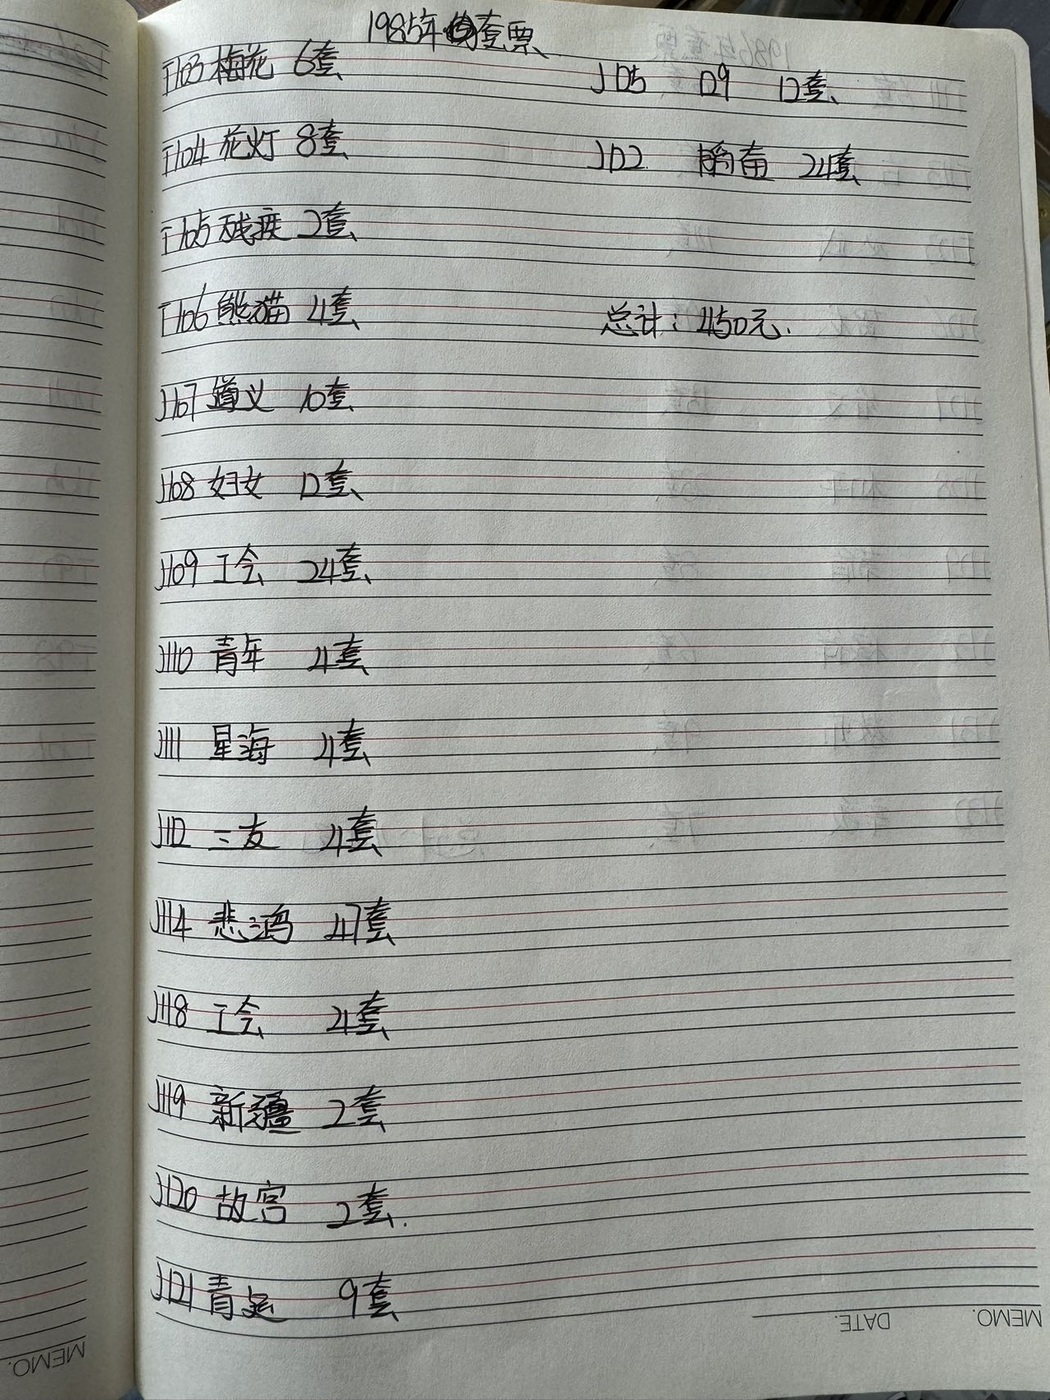 1985年套票
T103 梅花 6套
T104 花灯 8套
T105 残疾 2套
T106 熊猫 4套
J107 遵义 10套
J108 妇女 12套
J109 工会 24套
J110 青年 4套
J111 星海 4套
J112 三友 4套
J114 悲鸿 47套
J118 工会 24套
J119 新疆 2套
J120 故宫 2套.
J121 青运 9套
J125 129 12套
J122 韬奋 24套
总计：450元.
MEMO.
DATE.
MEMO.